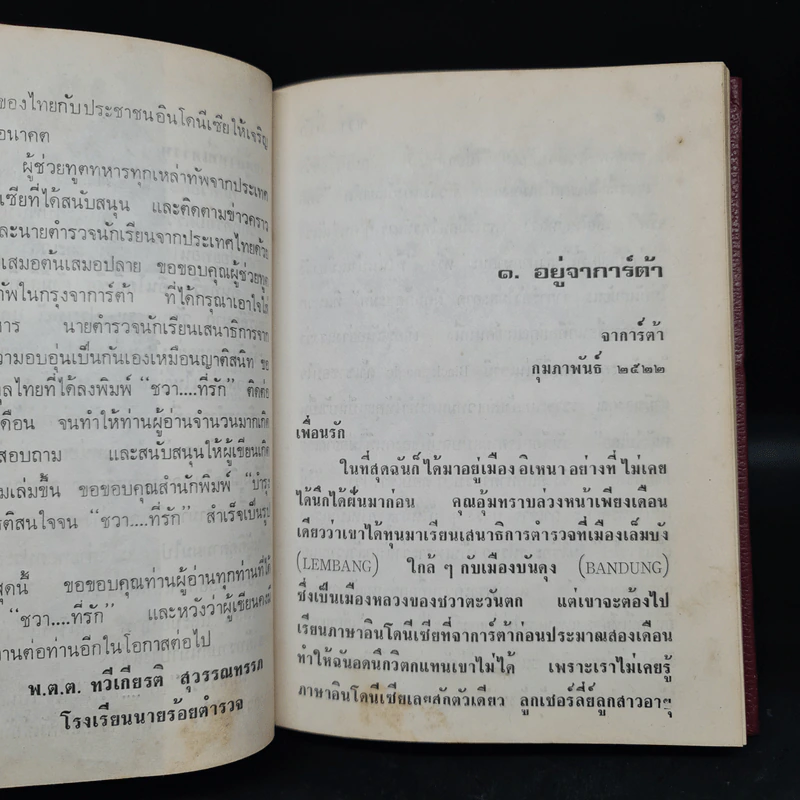 ของไทยกับประชาชนอินโดนีเซียให้เจริญ
อนาคต
ผู้ช่วยทูตทหารทุกเหล่าทัพจากประเทศ
เซียที่ได้สนับสนุน และติดตามข่าวคราว
ละนายตำรวจนักเรียนจากประเทศไทยด้วย
เสมอต้นเสมอปลาย ขอขอบคุณผู้ช่วยทูต
ทัพในกรุงจาการ์ต้า ที่ได้กรุณาเอาใจใส่
หาร นายตำรวจนักเรียนเสนาธิการจาก
วามอบอุ่นเป็นกันเองเหมือนญาติสนิท ขอ
ไทยที่ได้ลงพิมพ์ “ชวา....ที่รัก” ติดต่อ
เดือน จนทำให้ท่านผู้อ่านจำนวนมากเกิด
สอบถาม และสนับสนุนให้ผู้เขียนเกิด
มเล่มขึ้น ขอขอบคุณสำนักพิมพ์ “บำรุง
สนใจจน “ชวา....ที่รัก” สำเร็จเป็นรูป
สุดนี้ ขอขอบคุณท่านผู้อ่านทุกท่านที่ได้
“ชวา....ที่รัก” และหวังว่าผู้เขียนคง
านต่อท่านอีกในโอกาสต่อไป
พ.ต.ต. ทวีเกียรติ สุวรรณทรรภ
โรงเรียนนายร้อยตำรวจ
๑. อยู่จาการ์ต้า
จาการ์ต้า
กุมภาพันธ์ ๒๕๒๒
เพื่อนรัก
ในที่สุดฉันก็ได้มาอยู่เมือง อิเหนา อย่างที่ ไม่เคย
ได้นึกได้ฝันมาก่อน คุณอุ้มทราบล่วงหน้าเพียงเดือน
เดียวว่าเขาได้ทุนมาเรียนเสนาธิการตำรวจที่เมืองเล็มบัง
(LEMBANG) ใกล้ ๆ กับเมืองบันดุง (BANDUNG)
ซึ่งเป็นเมืองหลวงของชวาตะวันตก แต่เขาจะต้องไป
เรียนภาษาอินโดนีเซียที่จาการ์ต้าก่อนประมาณสองเดือน
ทำให้ฉันอดนึกวิตกแทนเขาไม่ได้ เพราะเราไม่เคยรู้
ภาษาอินโดนีเซียเลยสักตัวเดียว ลูกเชอร์ลี่ย์ลูกสาวอายุ